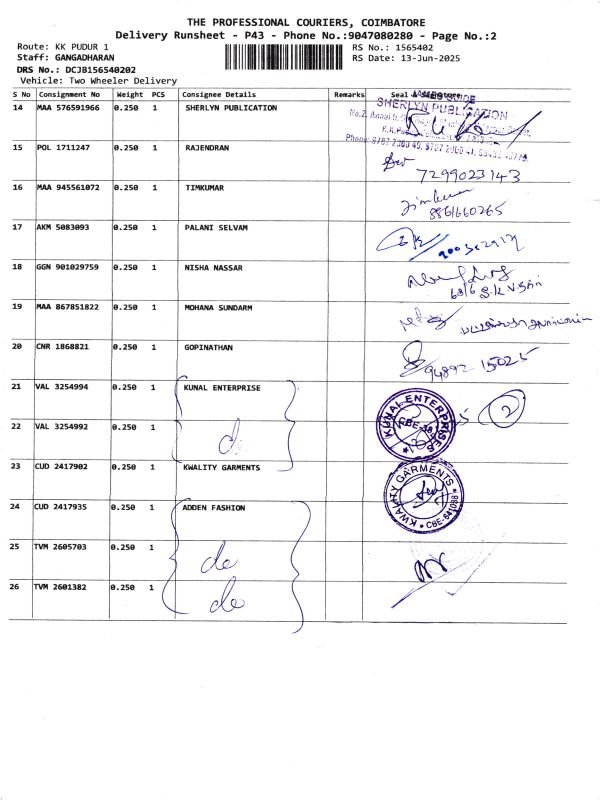 THE PROFESSIONAL COURIERS, COIMBATORE
Delivery Runsheet - P43 - Phone No.:9047080280 - Page No.:2
Route: KK PUDUR 1 RS No.: 1565402
Staff: GANGADHARAN RS Date: 13-Jun-2025
DRS No.: DCJB156540202
Vehicle: Two Wheeler Delivery
S No Consignment No Weight PCS Consignee Details Remarks Seal & Signature
14 MAA 576591966 0.250 1 SHERLYN PUBLICATION
SHERLYN PUBLICATION
15 POL 1711247 0.250 1 RAJENDRAN
7299023143
16 MAA 945561072 0.250 1 TIMKUMAR
Timkumar
8861660265
17 AKM 5083093 0.250 1 PALANI SELVAM
18 GGN 901029759 0.250 1 NISHA NASSAR
19 MAA 867851822 0.250 1 MOHANA SUNDARM
20 CNR 1868821 0.250 1 GOPINATHAN
94892 15025
21 VAL 3254994 0.250 1 KUNAL ENTERPRISE
KUNAL ENTERPRISES
CBE-38
2
22 VAL 3254992 0.250 1 do
23 CUD 2417902 0.250 1 KWALITY GARMENTS
KWALITY GARMENTS
CBE-641038
24 CUD 2417935 0.250 1 ADDEN FASHION
25 TVM 2605703 0.250 1 do
26 TVM 2601382 0.250 1 do